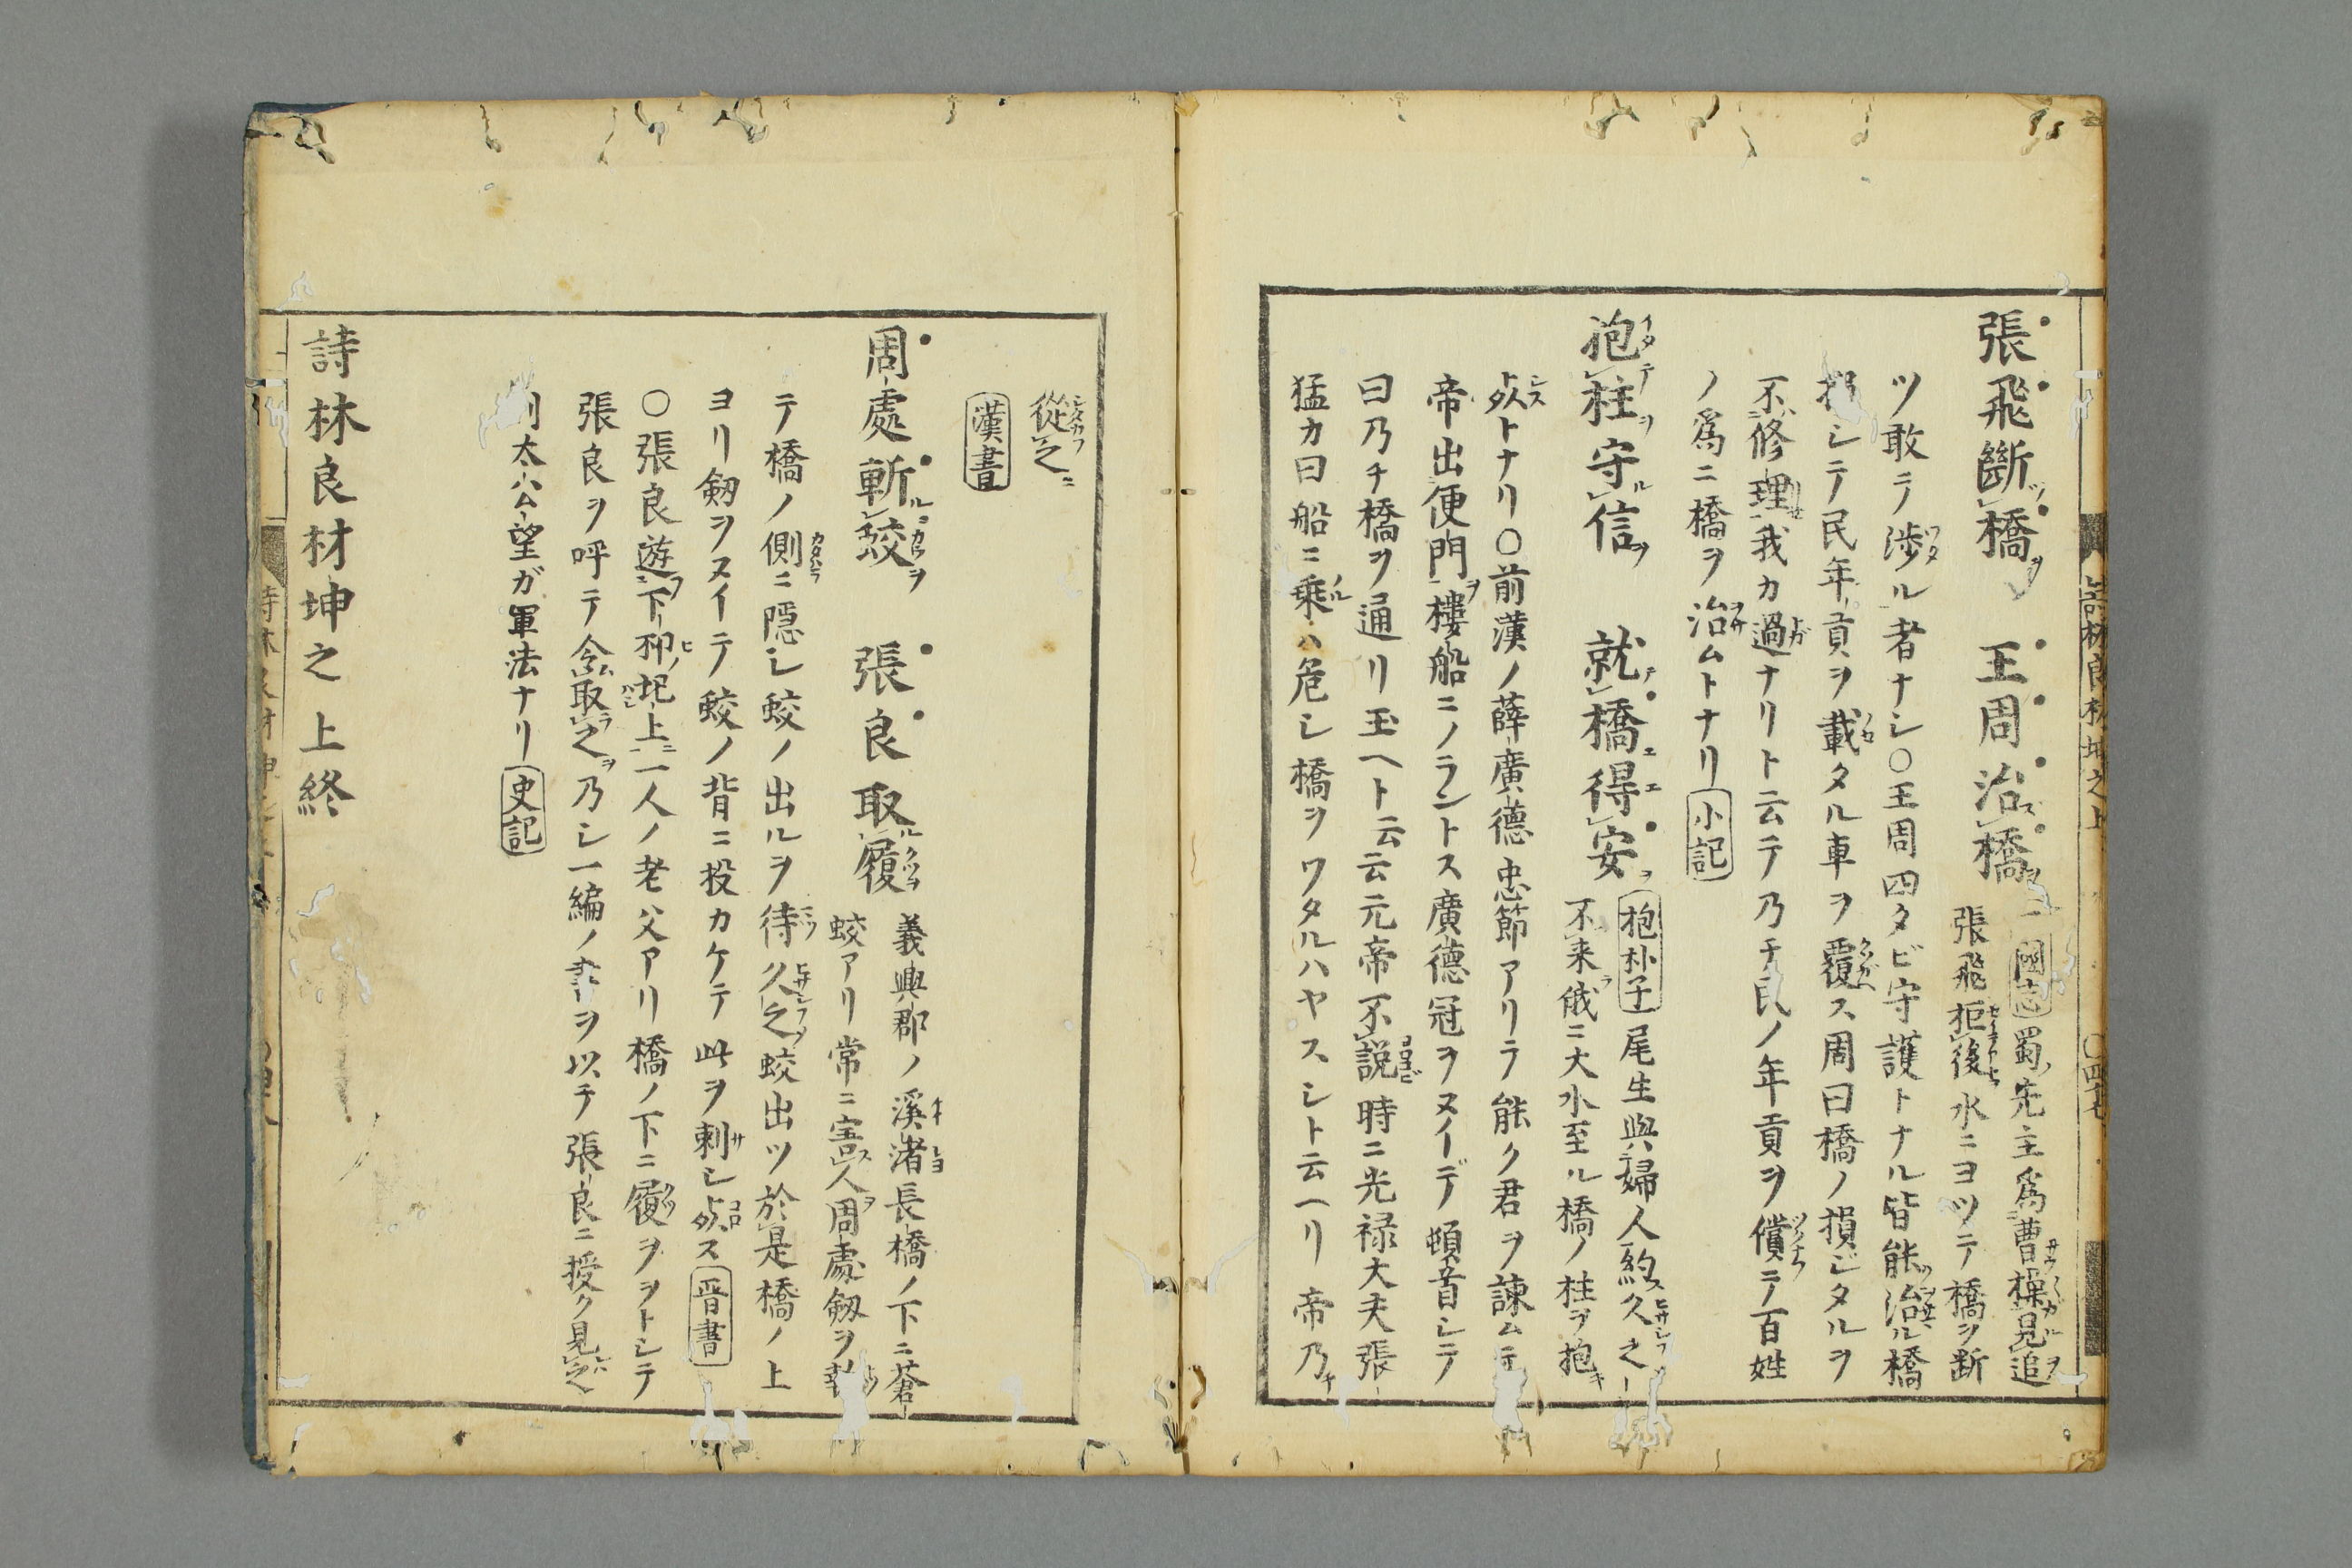 張飛斷橋　王周治橋
國志蜀先主爲曹操見追
張飛拒後水ニヨツテ橋ヲ断
ツ敢テ渉ル者ナシ○王周四タビ守護トナル皆能治ル橋
シテ民年貢ヲ載タル車ヲ覆ス周曰橋ノ損ジタルヲ
不修理我カ過ナリト云テ乃チ民ノ年貢ヲ償テ百姓
ノ爲ニ橋ヲ治ムトナリ小記
抱柱守信　就橋得安
抱朴子尾生與婦人約久之
不来俄ニ大水至ル橋ノ柱ヲ抱
トナリ○前漢ノ薛廣德忠節アリテ能ク君ヲ諫ム
帝出便門樓船ニノラントス廣德冠ヲヌイデ頓首シテ
曰乃チ橋ヲ通リ玉ヘト云云元帝不説時ニ光禄大夫張
猛カ曰船ニ乗ハ危シ橋ヲワタルハヤスシト云ヘリ帝乃チ
詩林良材坤之上　○四十七
從之
漢書
周處斬蛟　張良取履
義興郡ノ溪渚長橋ノ下ニ蒼
蛟アリ常ニ害人周處劔ヲ
テ橋ノ側ニ隱シ蛟ノ出ルヲ待久之蛟出ツ於是橋ノ上
ヨリ劔ヲヌイテ蛟ノ背ニ投カケテ此ヲ刺シ殺ス晋書
○張良遊下邳圯上一人ノ老父アリ橋ノ下ニ履ヲヲトシテ
張良ヲ呼テ令取之乃シ一編ノ書ヲ以テ張良ニ授ク見之
則太公望ガ軍法ナリ史記
詩林良材坤之上終